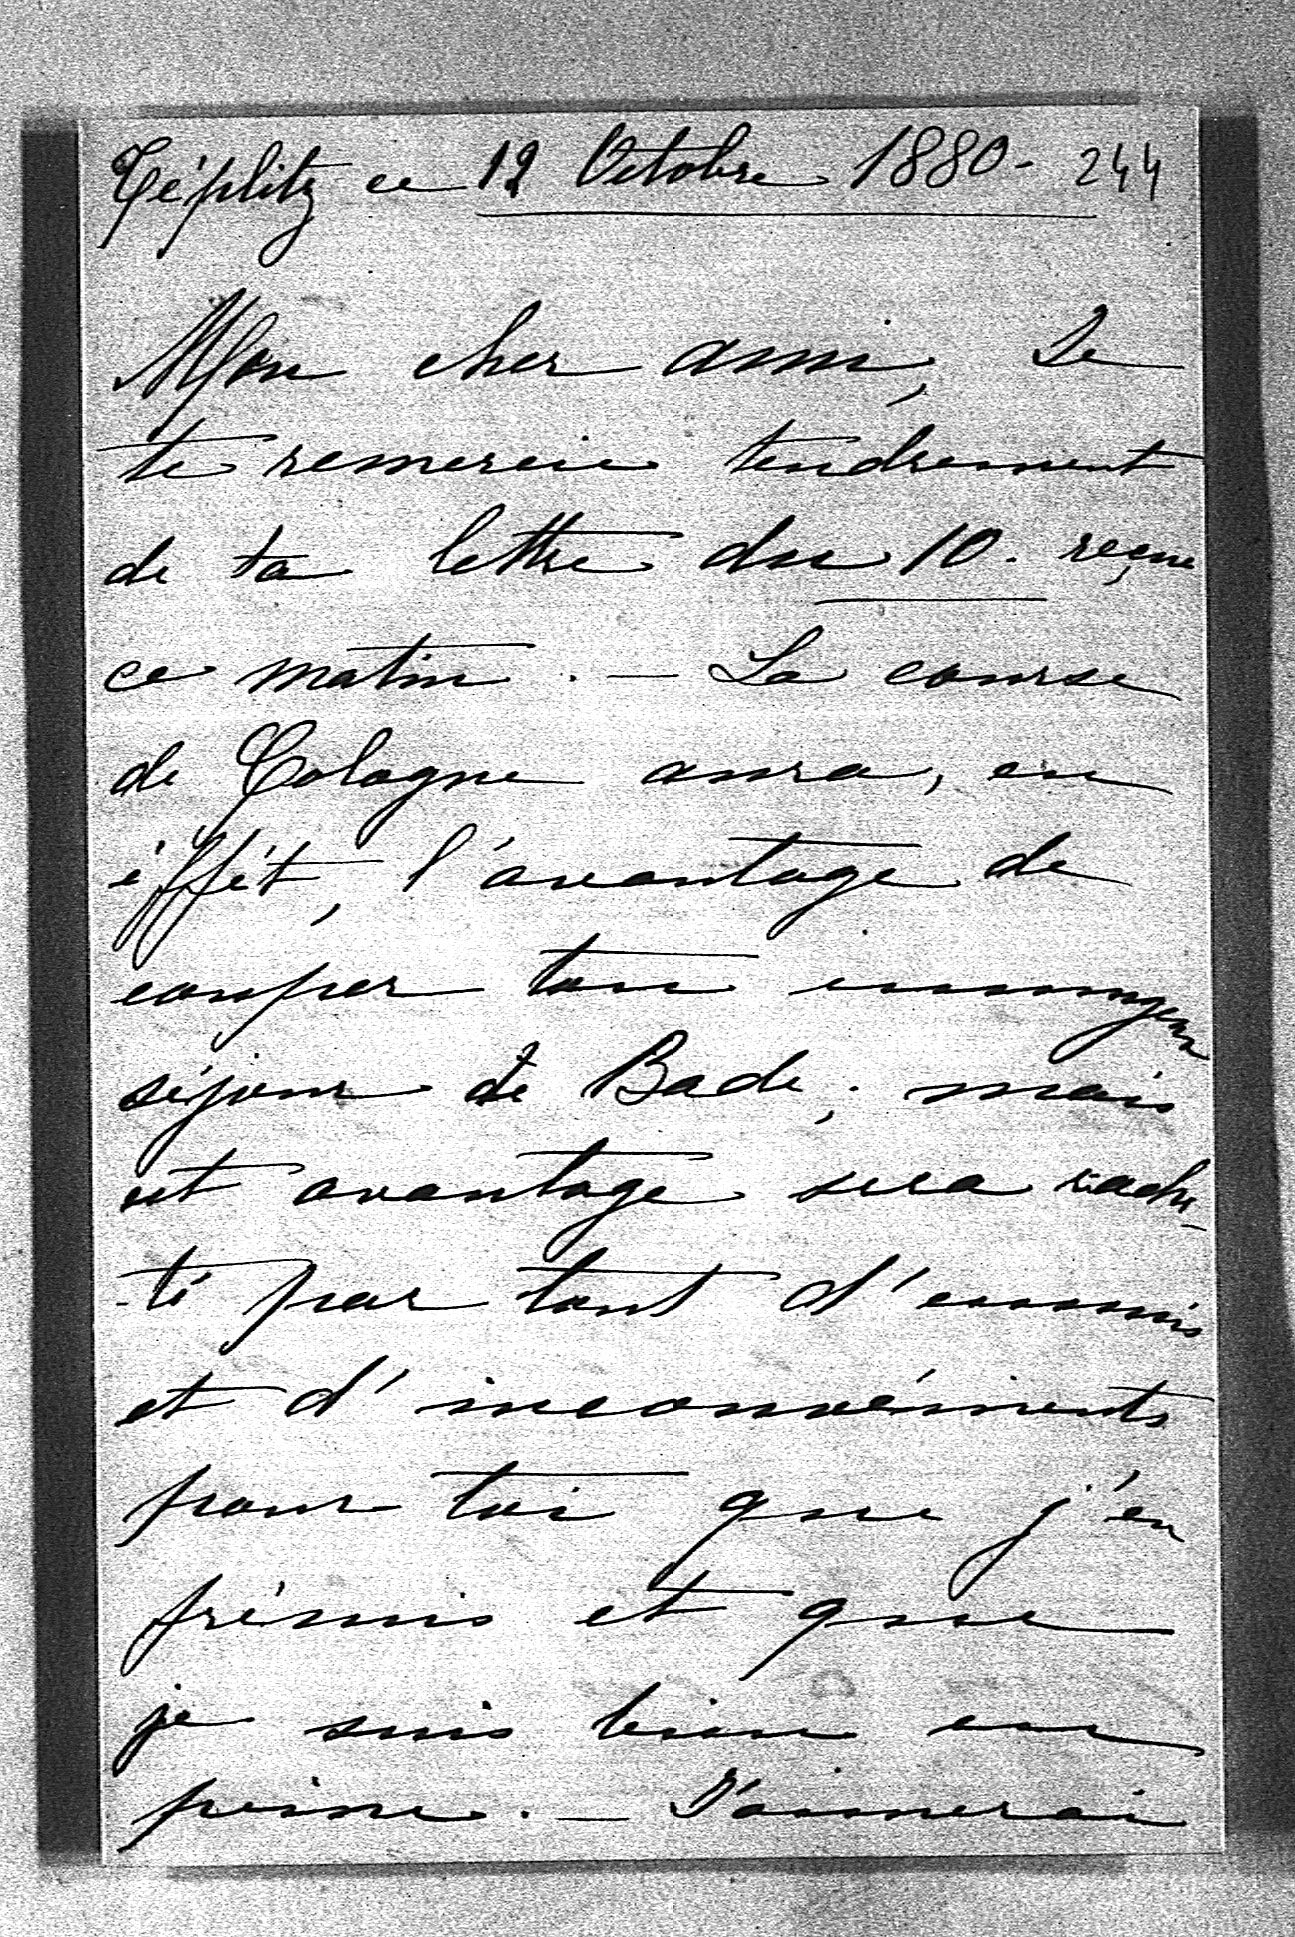 Téplitz ce 12 Octobre 1880 - 244
Mon cher ami, Je
te remercie tendrement
de ta lettre du 10. reçue
ce matin. — La course
de Cologne aura, en
éffét, l'avantage de
couper ton ennuyeux
séjour de Bade; mais
cet avantage sera rache-
-té par tant d'ennuis
et d'inconvénients
pour toi que j'en
frémis et que
je suis bien en
peine. — J'aimerai